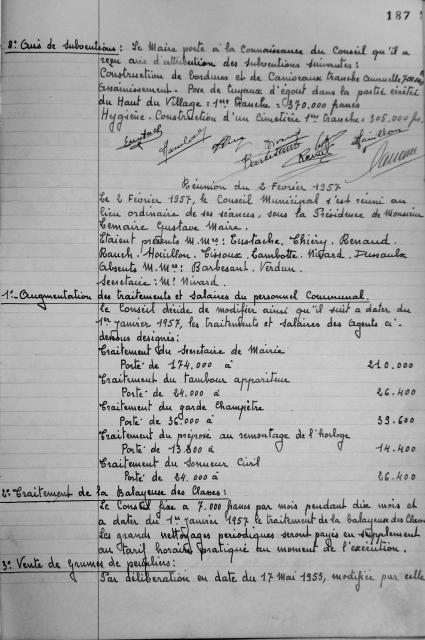 187
8º Avis de subventions : Le Maire porte à la connaissance du Conseil qu'il a
reçu avis d'attribution des subventions suivantes :
Construction de bordures et de Caniveaux tranche annuelle
Assainissement. Pose de tuyaux d'égout dans la partie
du Haut du Village : 1ère tranche = 370.000 francs
Hygiène. Construction d'un Cimetière 1ère tranche : 305.000 frs.
Eustach
Barbesant
Renaud
Houillon
Réunion du 2 Février 1957
Le 2 Février 1957, le Conseil Municipal s'est réuni au
lieu ordinaire de ses séances, sous la Présidence de Monsieur
Lemaire Gustave Maire.
Etaient présents M.Mrs : Eustache, Thiéry, Renaud.
Rauch. Houillon. Tissoux. Lambotte. Nivard. Dussaulx
Absents M.Mrs : Barbesant. Verdun.
Secrétaire : Mr Nivard.
1º- Augmentation des traitements et salaires du personnel Communal.
Le Conseil décide de modifier ainsi qu'il suit à dater du
1er janvier 1957, les traitements et salaires des Agents ci-
dessous désignés :
Traitement du Secrétaire de Mairie
Porté de 174.000 à 210.000
Traitement du tambour appariteur
Porté de 24.000 à 26.400
Traitement du garde Champêtre
Porté de 36.000 à 39.600
Traitement du préposé au remontage de l'horloge
Porté de 13.200 à 14.400
Traitement du sonneur Civil
Porté de 24.000 à 26.400
2º- Traitement de la Balayeuse des Classes :
Le Conseil fixe à 7.000 francs par mois pendant dix mois et
à dater du 1er janvier 1957 le traitement de la balayeuse des Classes
Les grands nettoyages périodiques seront payés en supplément
au tarif horaire pratiqué au moment de l'exécution.
3º- Vente de grumes de peupliers :
Par délibération en date du 17 Mai 1955, modifiée par celle